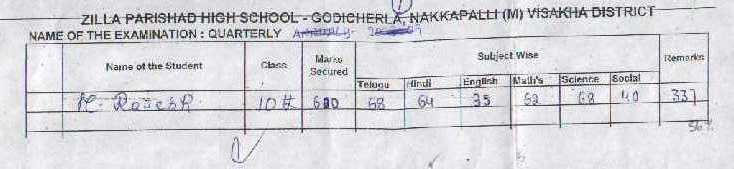 ZILLA PARISHAD HIGH SCHOOL - GODICHERLA, NAKKAPALLI (M) VISAKHA DISTRICT
NAME OF THE EXAMINATION : QUARTERLY
Name of the Student Class Marks Secured Subject Wise Remarks
Telugu Hindi English Math's Science Social
K. Rajesh 10th 600 68 64 35 62 68 40 337
56%